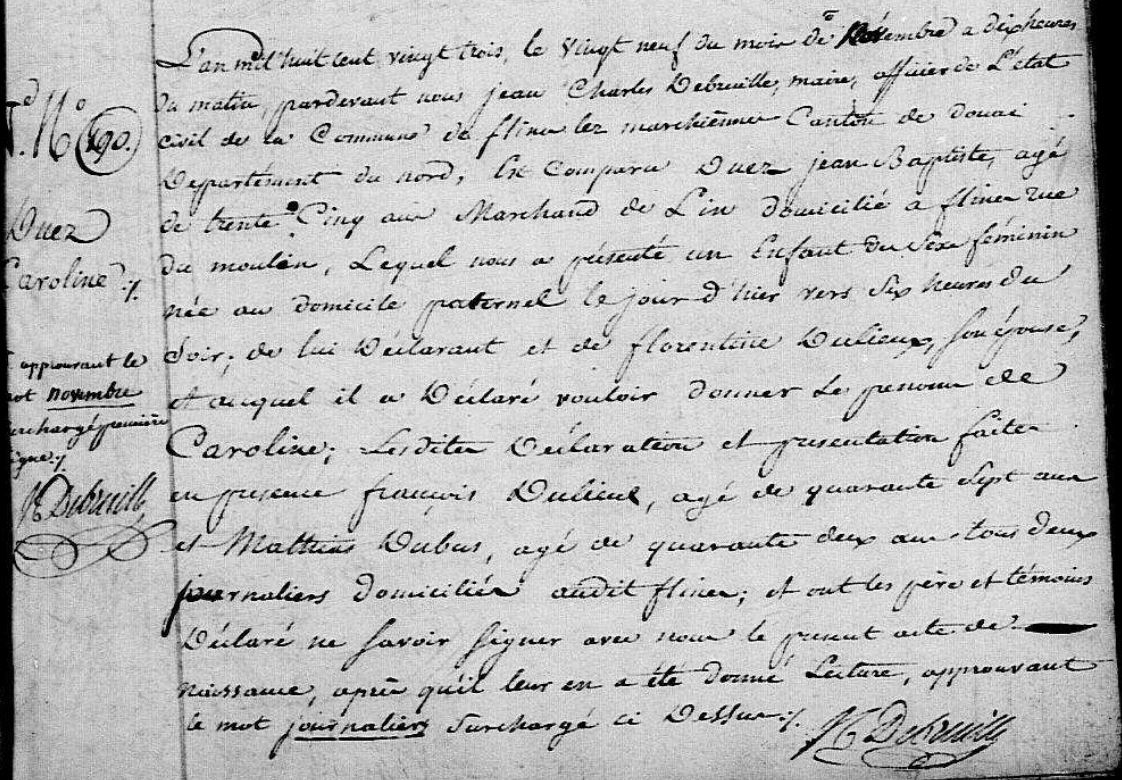 N.d N° 190.
Duez
Caroline ./.
approuvant le
mot novembre
surchargé premiere
ligne ./.
Debruille
L'an mil huit cent vingt trois, le vingt neuf du mois de Novembre a dix heures
du matin, pardevant nous jean Charles Debruille, maire, officier de L'état
civil de la Commune de flines lez marchiennes Canton de douai
Département du nord, Est Comparu Duez jean Baptiste, agé
de trente Cinq ans Marchand de Lin domicilié a flines rue
du moulin, Lequel nous a présenté un Enfant du Sexe féminin
née au domicile paternel le jour d'hier vers Six heures du
Soir, de lui Déclarant et de florentine Dulieux, son épouse,
et auquel il a Déclaré vouloir donner Le penom de
Caroline; Lesdites Déclaration et presentation faites
en presence françois Dulieux, agé de quarante Sept ans
et Mathias Dubus, agé de quarante deux ans tous deux
journaliers domiciliés audit flines; et ont les père et témoins
Déclaré ne savoir signer avec nous le present acte de
naissance, après qu'il leur en a été donné Lecture, approuvant
le mot journaliers Surchargé ci Dessus ./. Debruille